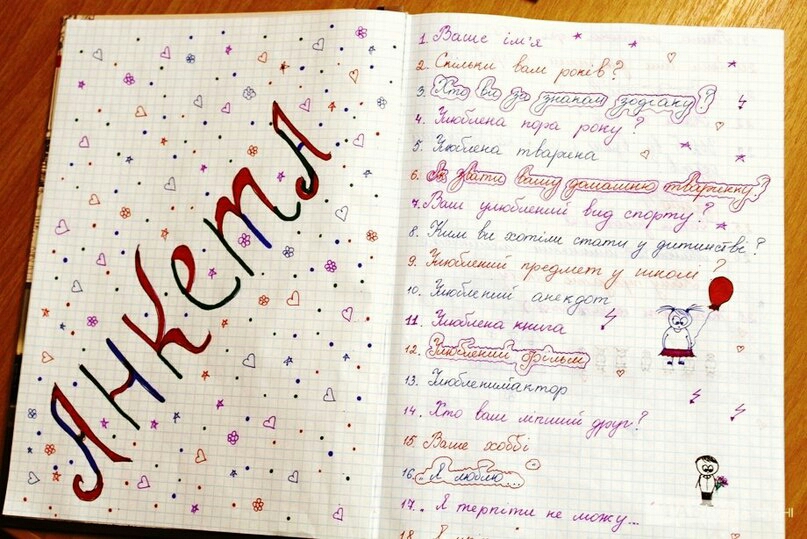 АНКЕТА
1. Ваше ім'я
2. Скільки вам років?
3. Хто ви за знаком зодіаку?
4. Улюблена пора року?
5. Улюблена тварина
6. Як звати вашу домашню тваринку?
7. Ваш улюблений вид спорту?
8. Ким ви хотіли стати у дитинстві?
9. Улюблений предмет у школі ?
10. Улюблений анекдот
11. Улюблена книга
12. Улюблений фільм
13. Улюблений актор
14. Хто ваш ліпший друг?
15. Ваше хоббі
16. Я люблю...
17. Я терпіти не можу...
18. Я
НІ